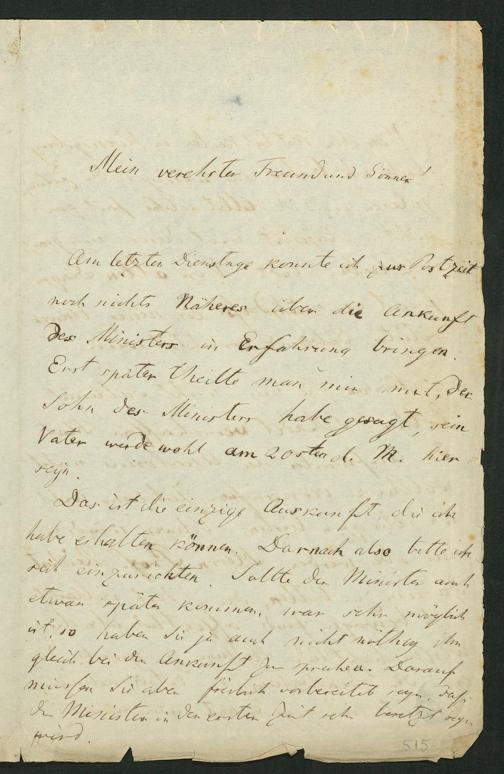 Mein verehrter Freund und Gönner!
Am letzten Dienstage konnte ich zur Postzeit
noch nichts Näheres über die Ankunft
des Ministers in Erfahrung bringen.
Erst später theilte man mir mit, der
Sohn des Ministers habe gesagt, sein
Vater werde wohl am 20sten d. M. hier
seyn.
Das ist die einzige Auskunft, die ich
habe erhalten können. Darnach also bitte ich
einzurichten. Sollte der Minister auch
etwas später kommen, was sehr möglich
ist, so haben Sie ja auch nicht nöthig ihn
gleich bei der Ankunft zu sprechen. Darauf
müssen Sie aber freilich vorbereitet seyn, daß
der Minister in der ersten Zeit sehr besetzt seyn
wird.
515